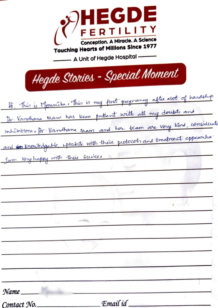 HEGDE
FERTILITY
Conception. A Miracle. A Science
Touching Hearts of Millions Since 1977
A Unit of Hegde Hospital
Hegde Stories - Special Moment
Hi This is . This is my first pregnancy after alot of hardship
Dr Vandhana mam has been patient with all my doubts and
inhibitions. Dr Vandhana mam and her team are very kind, considerate
and knowledgable, upfront with their protocols and treatment approaches
I am very happy with their service
Name
Contact No.
Email id